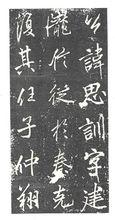 公諱思訓字建
隴信徙於秦克
復其任子仲翔